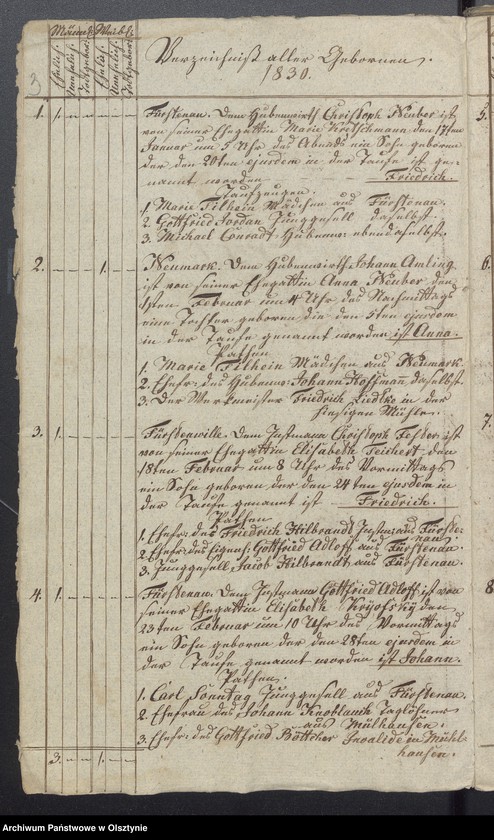 Männl. Weibl.
Verzeichniß aller Gebornen.
1830.
3
1. 1.
Fürstenau. Dem Hubenwirth Christoph Neuber ist
von seiner Ehegattin Marie Kretschmann den 17ten
Januar um 5 Uhr des Abends ein Sohn geboren
der den 20ten ejusdem in der Taufe ist ge-
nannt worden Friedrich.
Taufzeugen.
1. Marie Filhein Mädchen aus Fürstenau.
2. Gottfried Jordan Junggesell daselbst.
3. Michael Conradt Hubenw: ebendaselbst.
2. 1.
Neumark. Dem Hubenwirth Johann Amling
ist von seiner Ehegattin Anna Neuber den
1sten Februar um 4 Uhr des Nachmittags
eine Tochter geboren die den 5ten ejusdem
in der Taufe genannt worden ist Anna.
Pathen
1. Marie Filhein Mädchen aus Neumark.
2. Ehefr: des Hubenw: Johann Hoffman daselbst.
3. Der Werkmeister Friedrich Liedtke in der
hiesigen Mühle.
3. 1.
Fürstenwille. Dem Instmann Christoph Feßer ist
von seiner Ehegattin Elisabeth Teichert den
18ten Februar um 8 Uhr des Vormittags
ein Sohn geboren der den 24ten ejusdem in
der Taufe genant ist Friedrich.
Pathen
1. Ehefr: des Friedrich Hilbrandt Instm: aus Fürste-
nau.
2. Ehefr: des Eigenk: Gottfried Adloff aus Fürstenau.
3. Junggesell Jacob Hilbrandt aus Fürstenau.
4. 1.
Fürstenau. Dem Instmann Gottfried Adloff ist von
seiner Ehegattin Elisabeth den
23ten Februar um 10 Uhr des Vormittags
ein Sohn geboren der den 28ten ejusdem in
der Taufe genannt worden ist Johann.
Pathen.
1. Carl Sonntag Junggesell aus Fürstenau.
2. Ehefrau des Johann Knoblauch Taglöhner
aus Mülhausen.
3. Ehefr: des Gottfried Böttcher Invalide in Mühl-
hausen.
3. 1.
5.
6.
7.
8
Archiwum Państwowe w Olsztynie